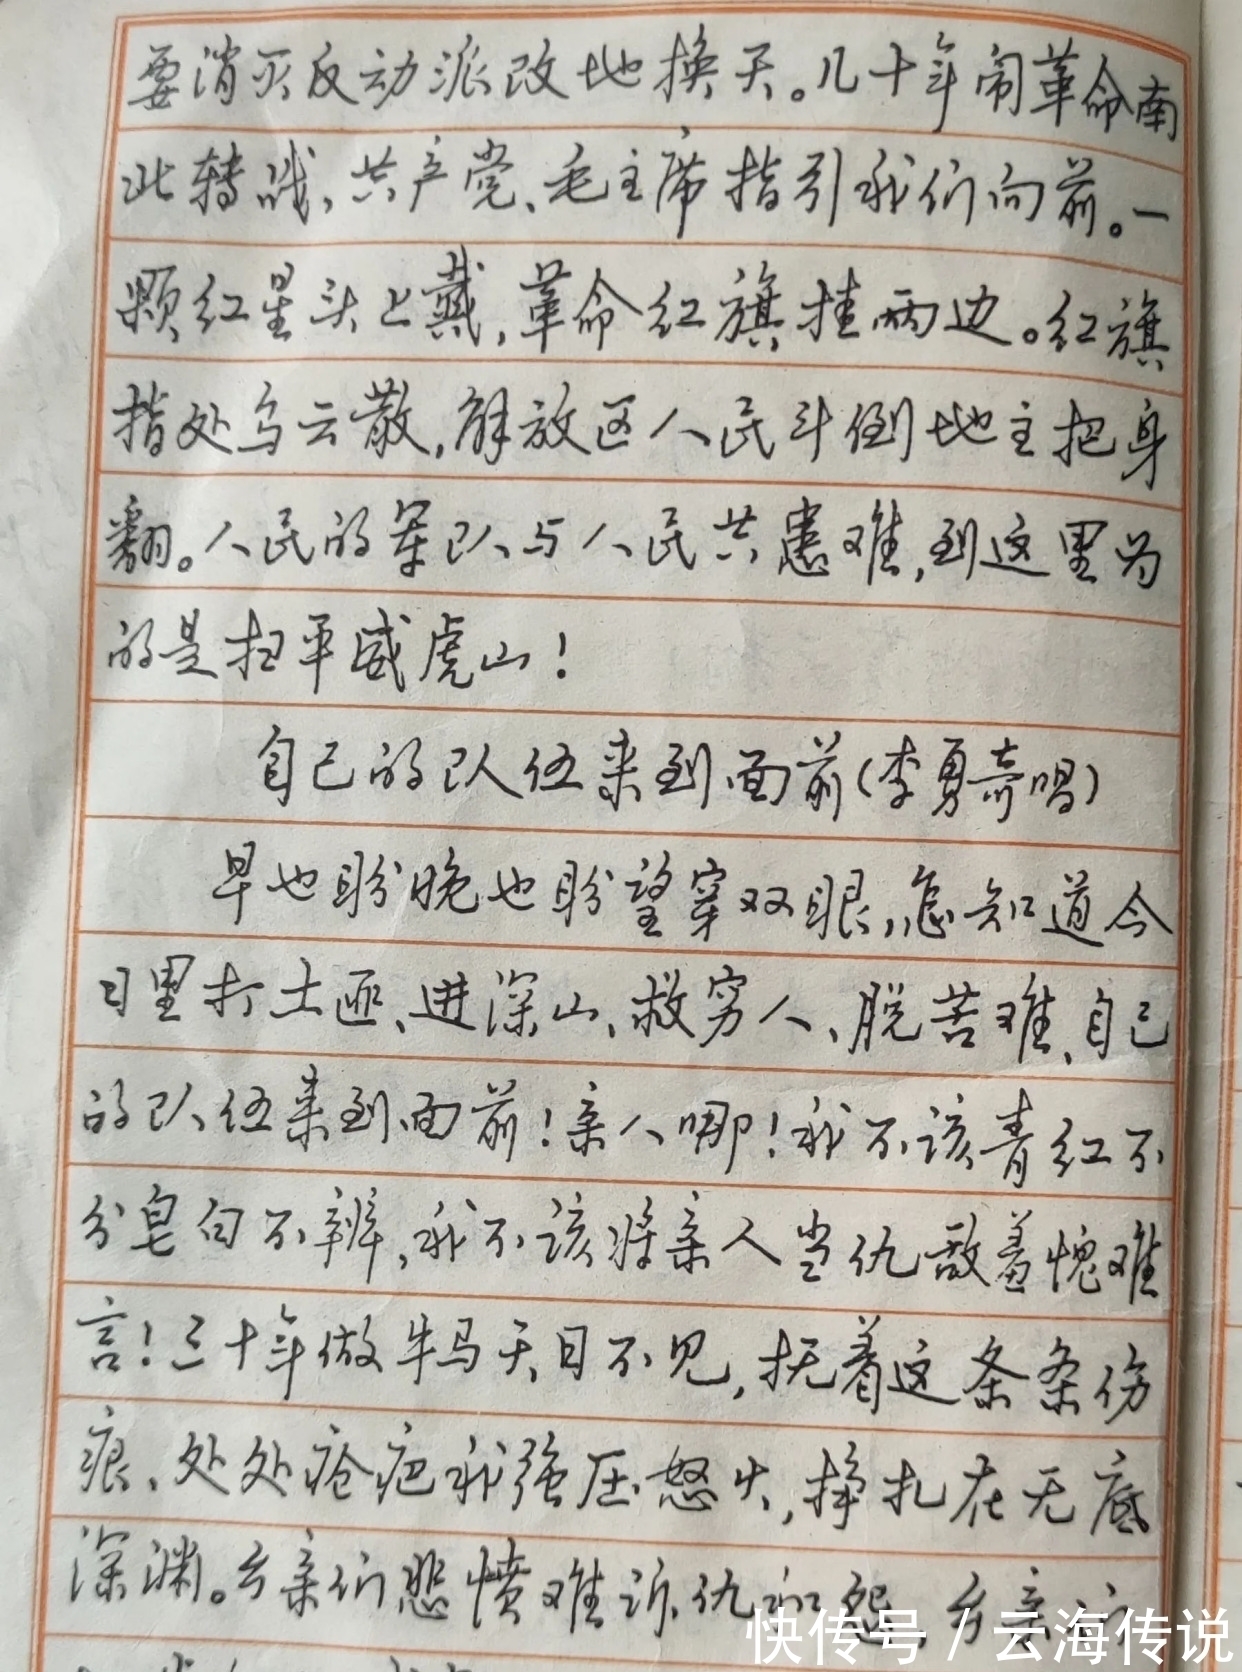 要消灭反动派改地换天。几十年闹革命南
北转战,共产党、毛主席指引我们向前。一
颗红星头上戴,革命红旗挂两边。红旗
指处乌云散,解放区人民斗倒地主把身
翻。人民的军队与人民共患难,到这里为
的是扫平威虎山!
自己的队伍来到面前(李勇奇唱)
早也盼晚也盼望穿双眼,怎知道今
日里打土匪、进深山、救穷人、脱苦难、自己
的队伍来到面前!亲人哪!我不该青红不
分皂白不辨,我不该将亲人当仇敌羞愧难
言!三十年做牛马天日不见,抚着这条条伤
痕、处处疮疤我强压怒火,挣扎在无底
深渊。乡亲们悲愤难诉仇和冤,乡亲们
快传号/云海传说